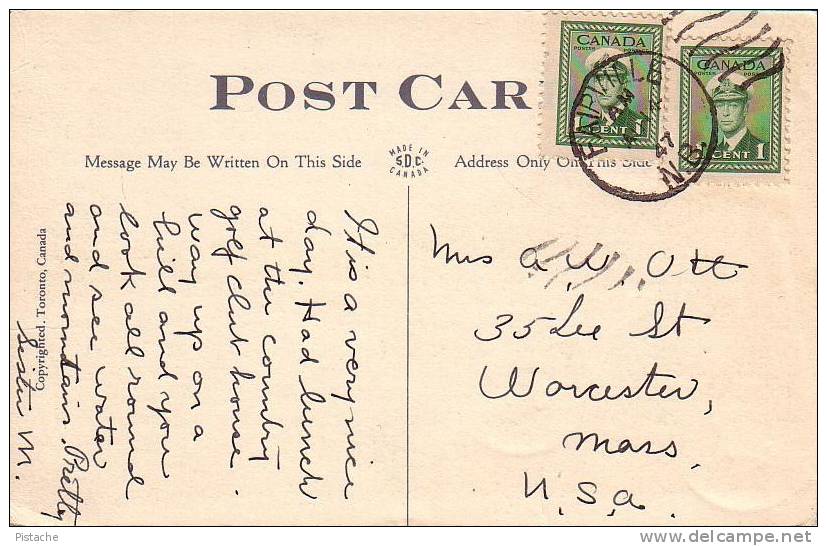 POST CAR
Message May Be Written On This Side
MADE IN
S.D.C.
CANADA
Address Only On This Side
CANADA
POSTES POSTAGE
CENT 1
CANADA
POSTES POSTAGE
CENT 1
FAIRVILLE
AM
47
N.B.
It is a very nice
day. Had lunch
at the country
golf club house.
way up on a
hill and you
look all round
and see water
and mountains. Pretty
Sister M.
Copyrighted, Toronto, Canada
Miss A. W. Ott
35 Lee St
Worcester,
Mass.
U.S.a.
Pistache
www.delcampe.net